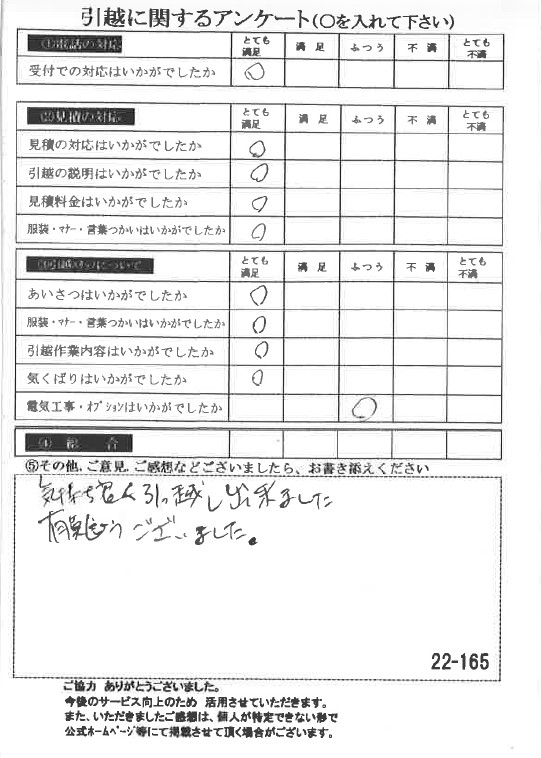 引越に関するアンケート(○を入れて下さい)
①電話の対応 とても満足 満足 ふつう 不満 とても不満
受付での対応はいかがでしたか ○
②見積の対応 とても満足 満足 ふつう 不満 とても不満
見積の対応はいかがでしたか ○
引越の説明はいかがでしたか ○
見積料金はいかがでしたか ○
服装・マナー・言葉つかいはいかがでしたか ○
とても満足 満足 ふつう 不満 とても不満
あいさつはいかがでしたか ○
服装・マナー・言葉つかいはいかがでしたか ○
引越作業内容はいかがでしたか ○
気くばりはいかがでしたか ○
電気工事・オプションはいかがでしたか ○
④総合
⑤その他、ご意見、ご感想などございましたら、お書き添えください
気持ち良く引っ越し出来ました
有難うございました。
22-165
ご協力 ありがとうございました。
今後のサービス向上のため 活用させていただきます。
また、いただきましたご感想は、個人が特定できない形で
公式ホームページ等にて掲載させて頂く場合がございます。